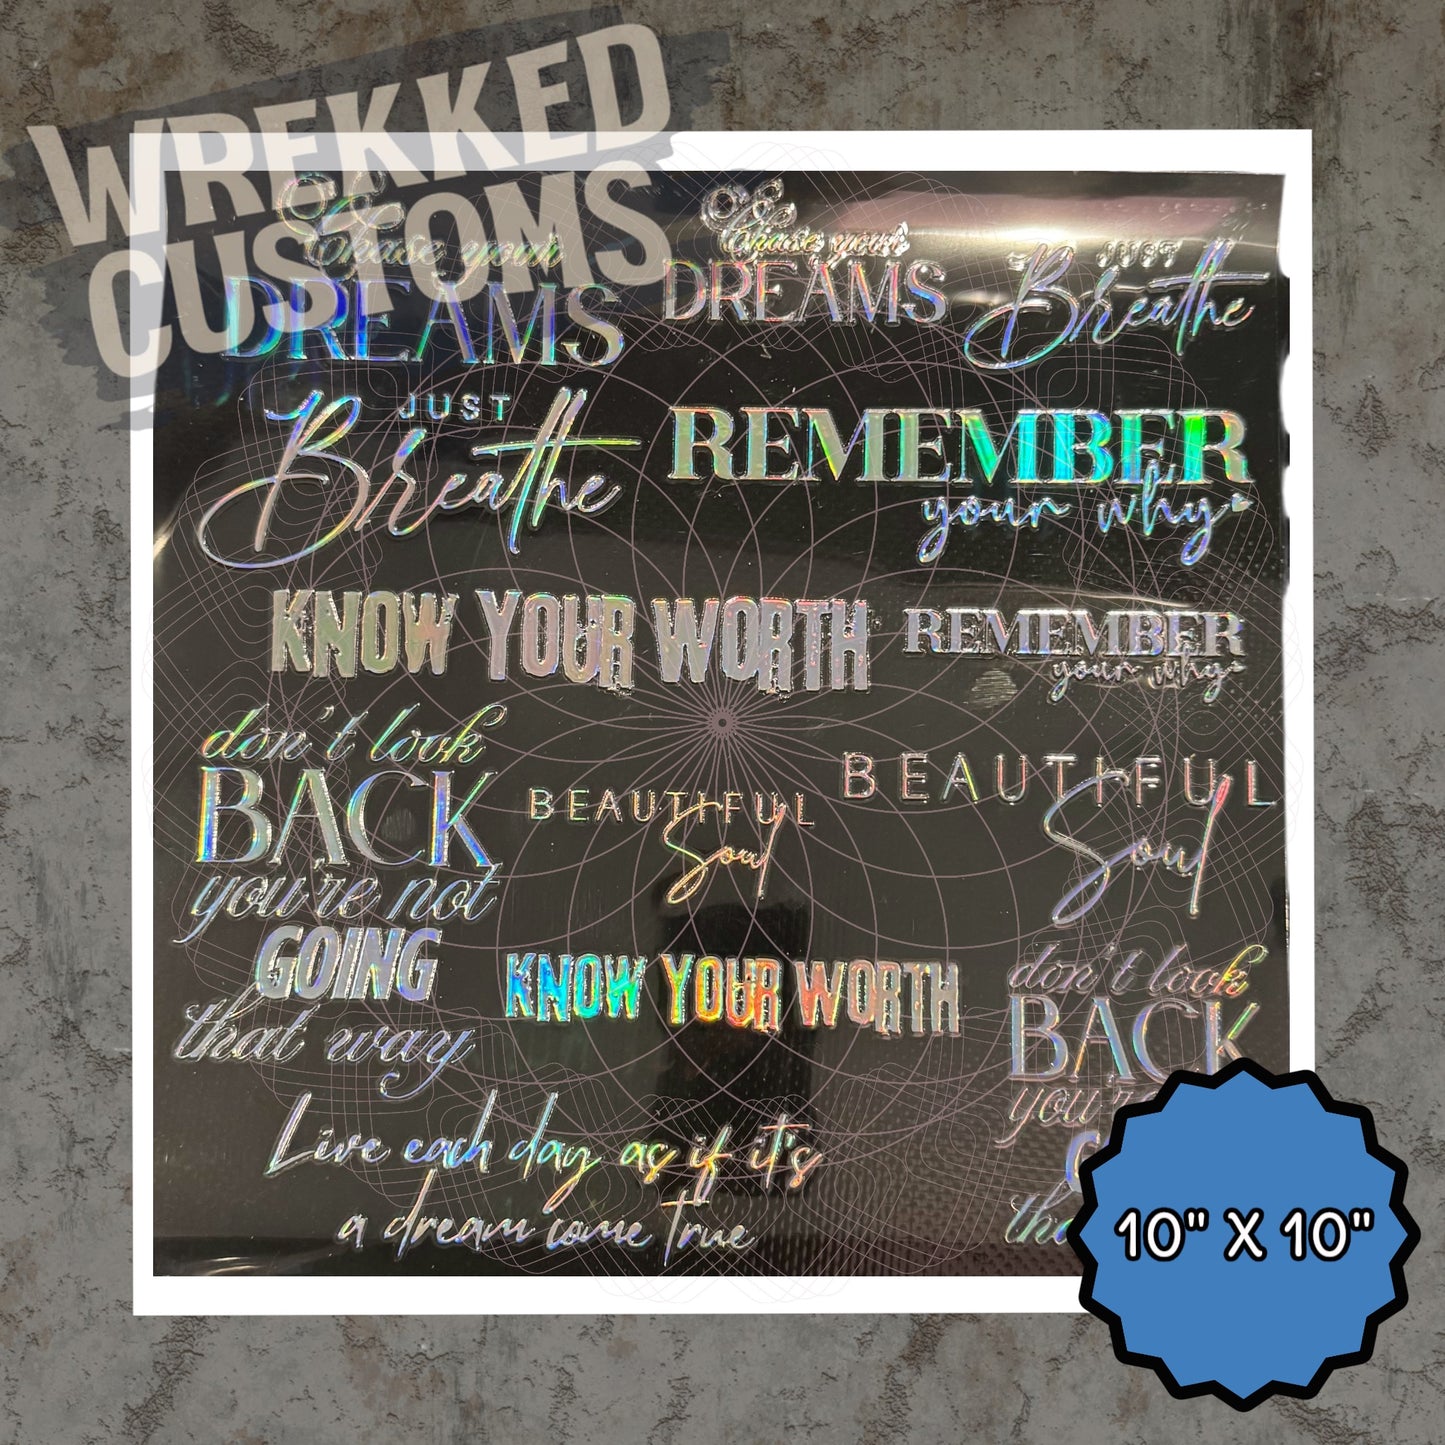 WREKKED
CUSTOMS
Chase your
DREAMS
Chase your
DREAMS
JUST
Breathe
JUST
Breathe
REMEMBER
your why
KNOW YOUR WORTH
REMEMBER
your why
don't look
BACK
you're not
GOING
that way
BEAUTIFUL
Soul
BEAUTIFUL
Soul
KNOW YOUR WORTH
don't look
BACK
Live each day as if it's
a dream come true
10" X 10"